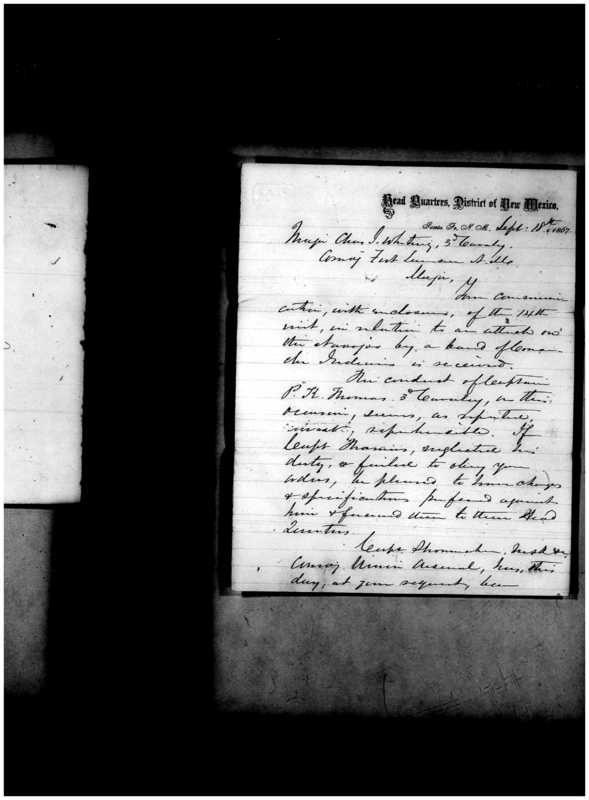 Head Quarters, District of New Mexico,
Santa Fe, N. M. Sept: 18th, 1867
Major Chas J. Whiting, 3d Cavalry.
Comdg Fort Sumner N. Mo.
Major,
Your communi-
cation, with enclosures, of the 14th
inst, in relation to an attack on
the Navajos by a band of Coman-
che Indians is received.
The conduct of Captain
P. H. Thomas 3d Cavalry, on this
occasion, seems, as reported,
most reprehensible. If
Capt Thomas, neglected his
duty, & failed to obey your
orders, be pleased to have charges
& specifications preferred against
him & forward them to these Head
Quarters.
Capt Shoemaker,
Comdg Union Arsenal, has, this
day, at your request, been